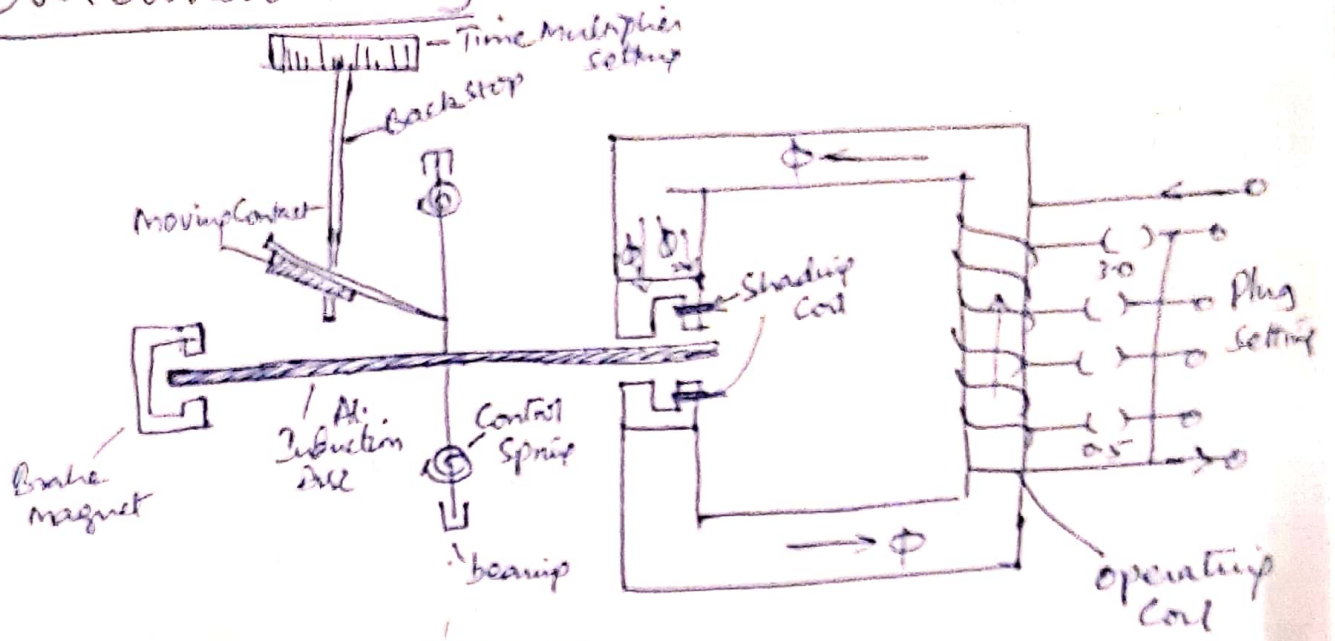 Time Multiplier
Setting
Back Stop
Moving Contact
Φ
Φ Φ
Shading
Coil
3.0
Plug
Setting
0.5
Al.
Induction
Disc
Control
Spring
Brake
magnet
bearing
Φ
Operating
Coil